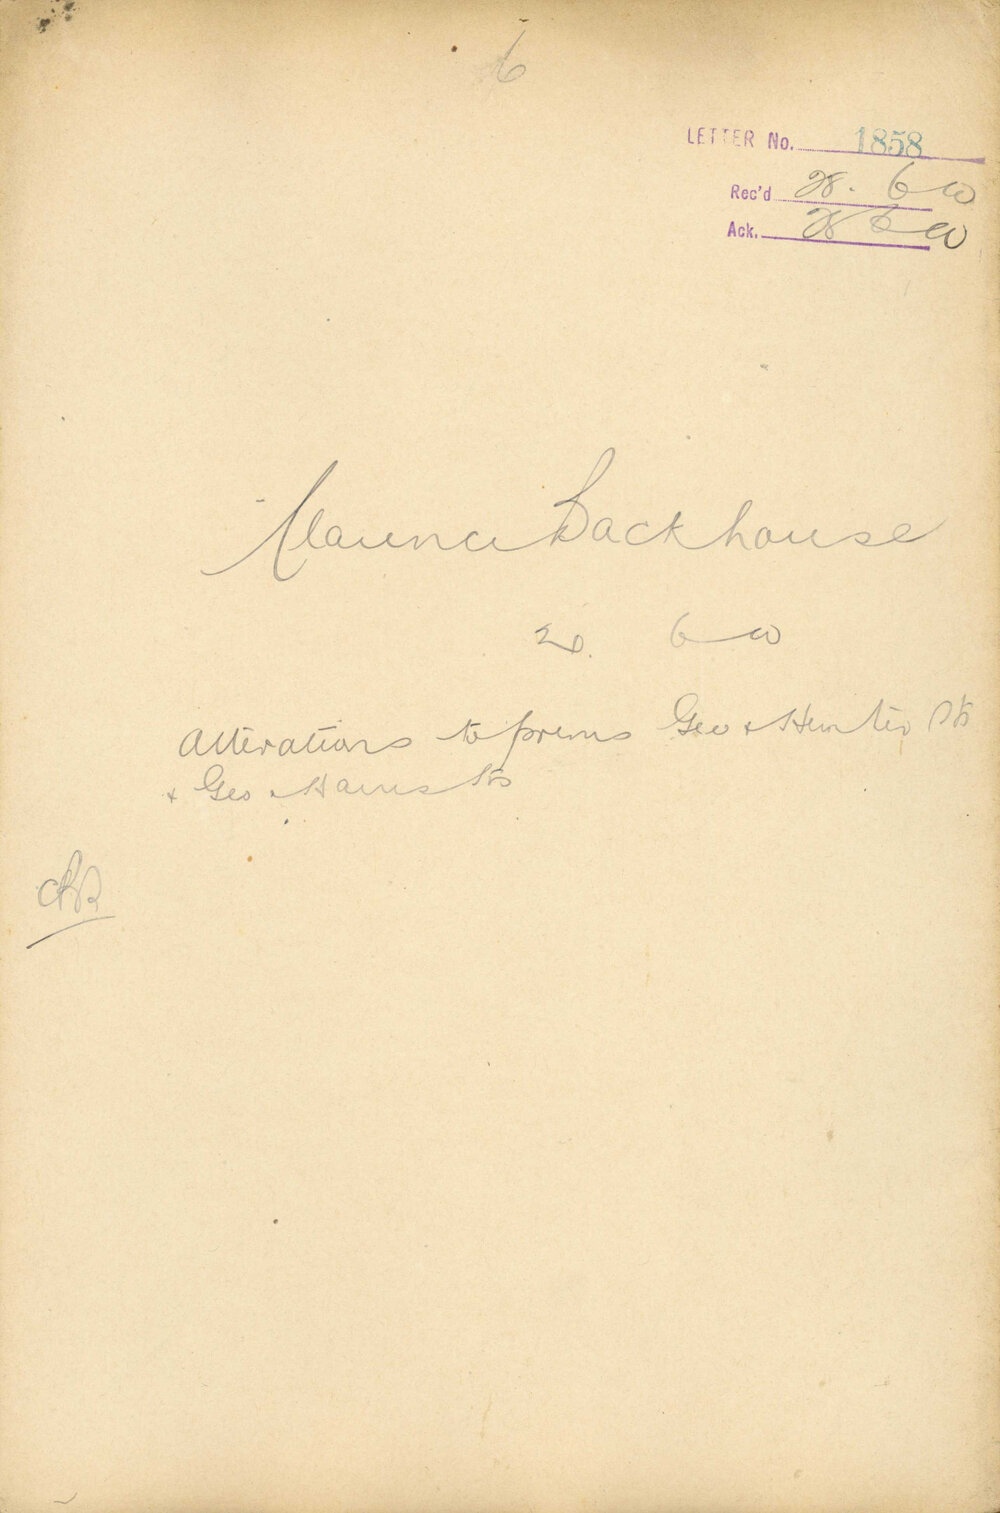 6
LETTER No. 1858
Rec'd 28. 6 00
Ack. 28 6 00
Clarence Backhouse
6 00
Alterations to prems Geo & Hunter Sts
& Geo & Harris Sts